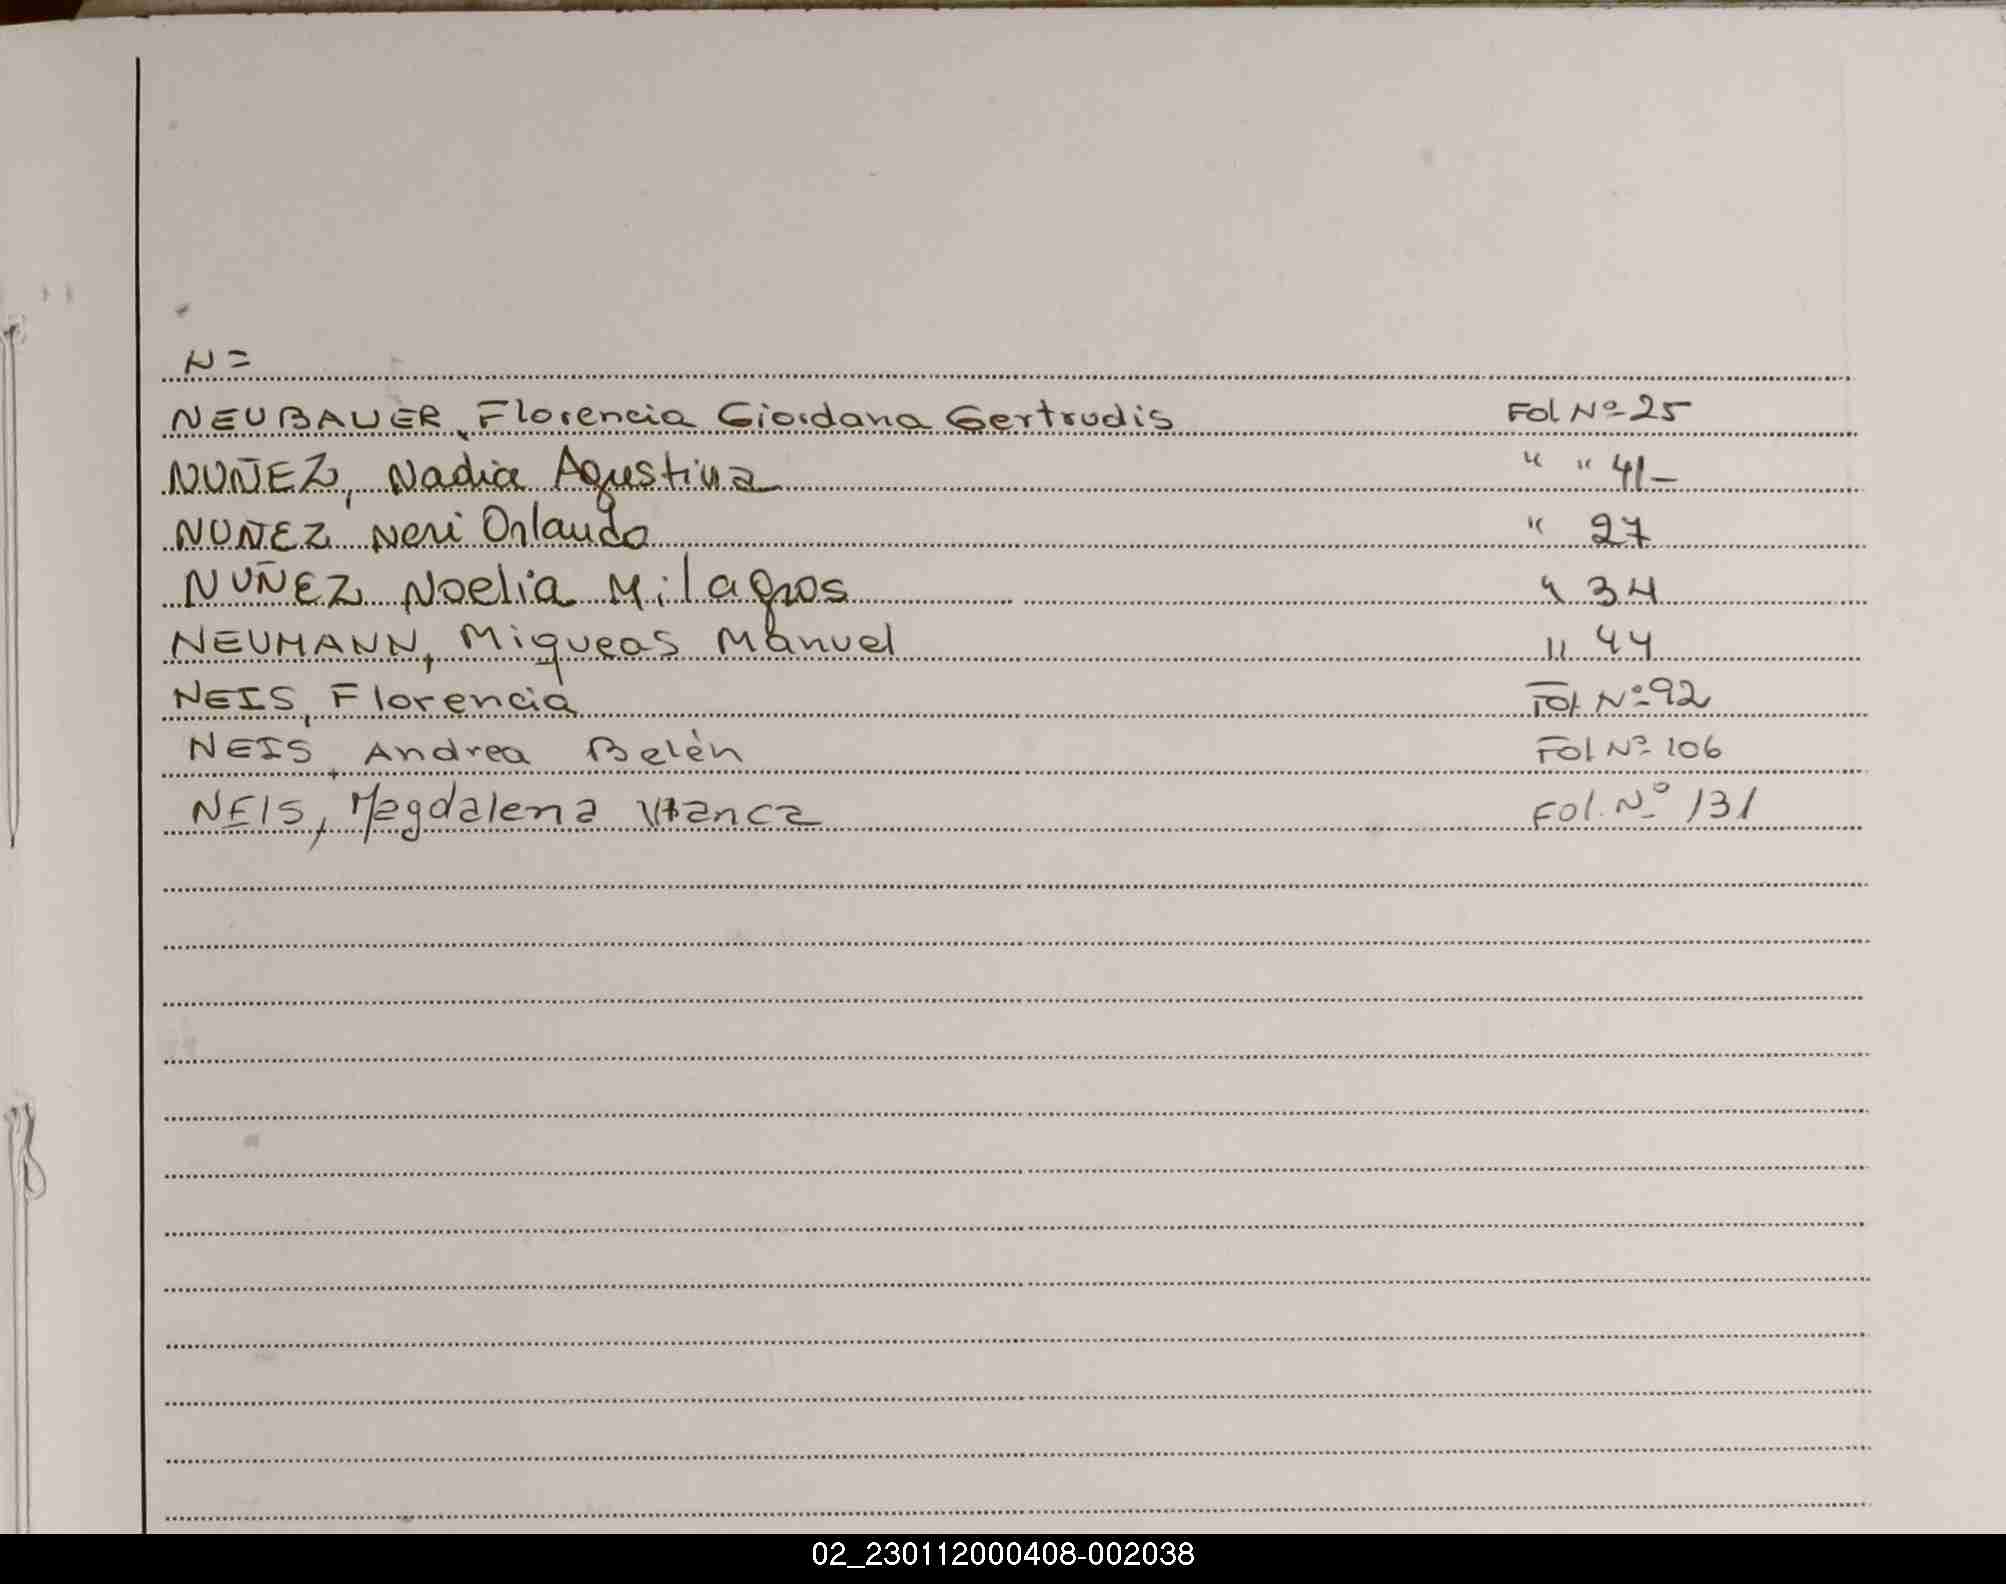 N=
NEUBAUER, Florencia Giordana Gertrudis Fol Nº 25
NUÑEZ, Nadia Agustina " " 41-
NUÑEZ Neri Orlando " 27
NUÑEZ Noelia Milagros " 34
NEUMANN, Miqueas Manuel " 44
NEIS, Florencia Fol. Nº 92
NEIS, Andrea Belén Fol Nº 106
NEIS, Magdalena Fol. Nº 131
02_230112000408-002038